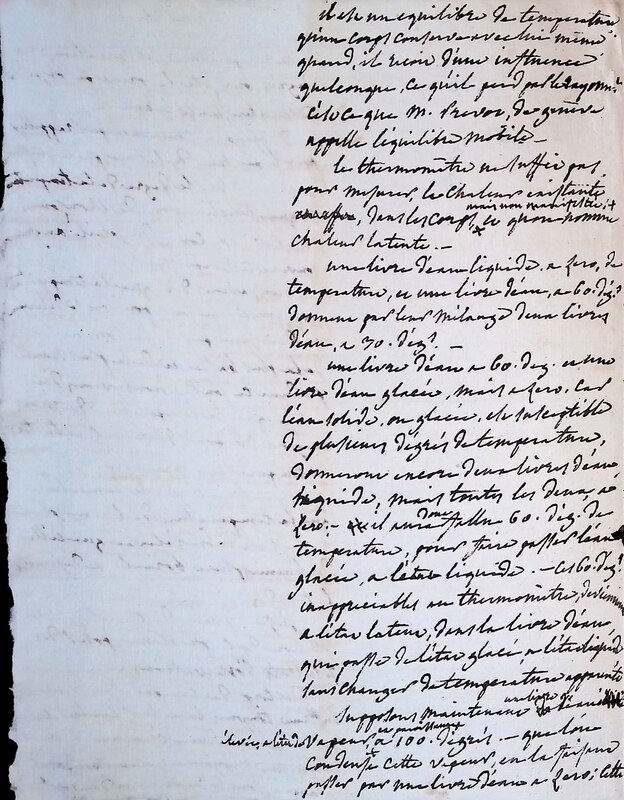 il est un equilibre de temperature
qu'un corps conserve avec lui même
quand, il reçoit d'une influence
quelconque, ce qu'il perd par le rayonnt
c'est ce que M. Prevot, de genève
appelle l'équilibre mobile -
le thermomètre ne suffit pas,
pour mesurer, la chaleur existante
mais non manifestée;
dans les corps, et qu'on nomme
chaleur latente. -
une livre d'eau liquide. a zero, de
temperature, et une livre d'eau, a 60. dég.s
donnent par leur mélange deux livres
d'eau, a 30. dég.s. -
une livre d'eau a 60. deg. et une
livre d'eau glacée, mais a zero. car
l'eau solide, ou glacée, est susceptible
de plusieurs dégrés de temperature,
donneront encore deux livres d'eau
liquide, mais toutes les deux, a
zero. - il aura donc fallu 60. dég. de
temperature, pour faire passer l'eau
glacée, a l'état liquide. - ces 60. deg.s
inappreciables au thermomètre, deviennent
a l'état latent, dans la livre d'eau,
qui passe de l'état glacé, a l'état liquide
sans changer de temperature apparente
supposons maintenant une livre de
élevée, a l'état de vapeur, a 100. dégrés. - que l'on
condense cette vapeur, en la faisant
passer par une livre d'eau a zero; cette